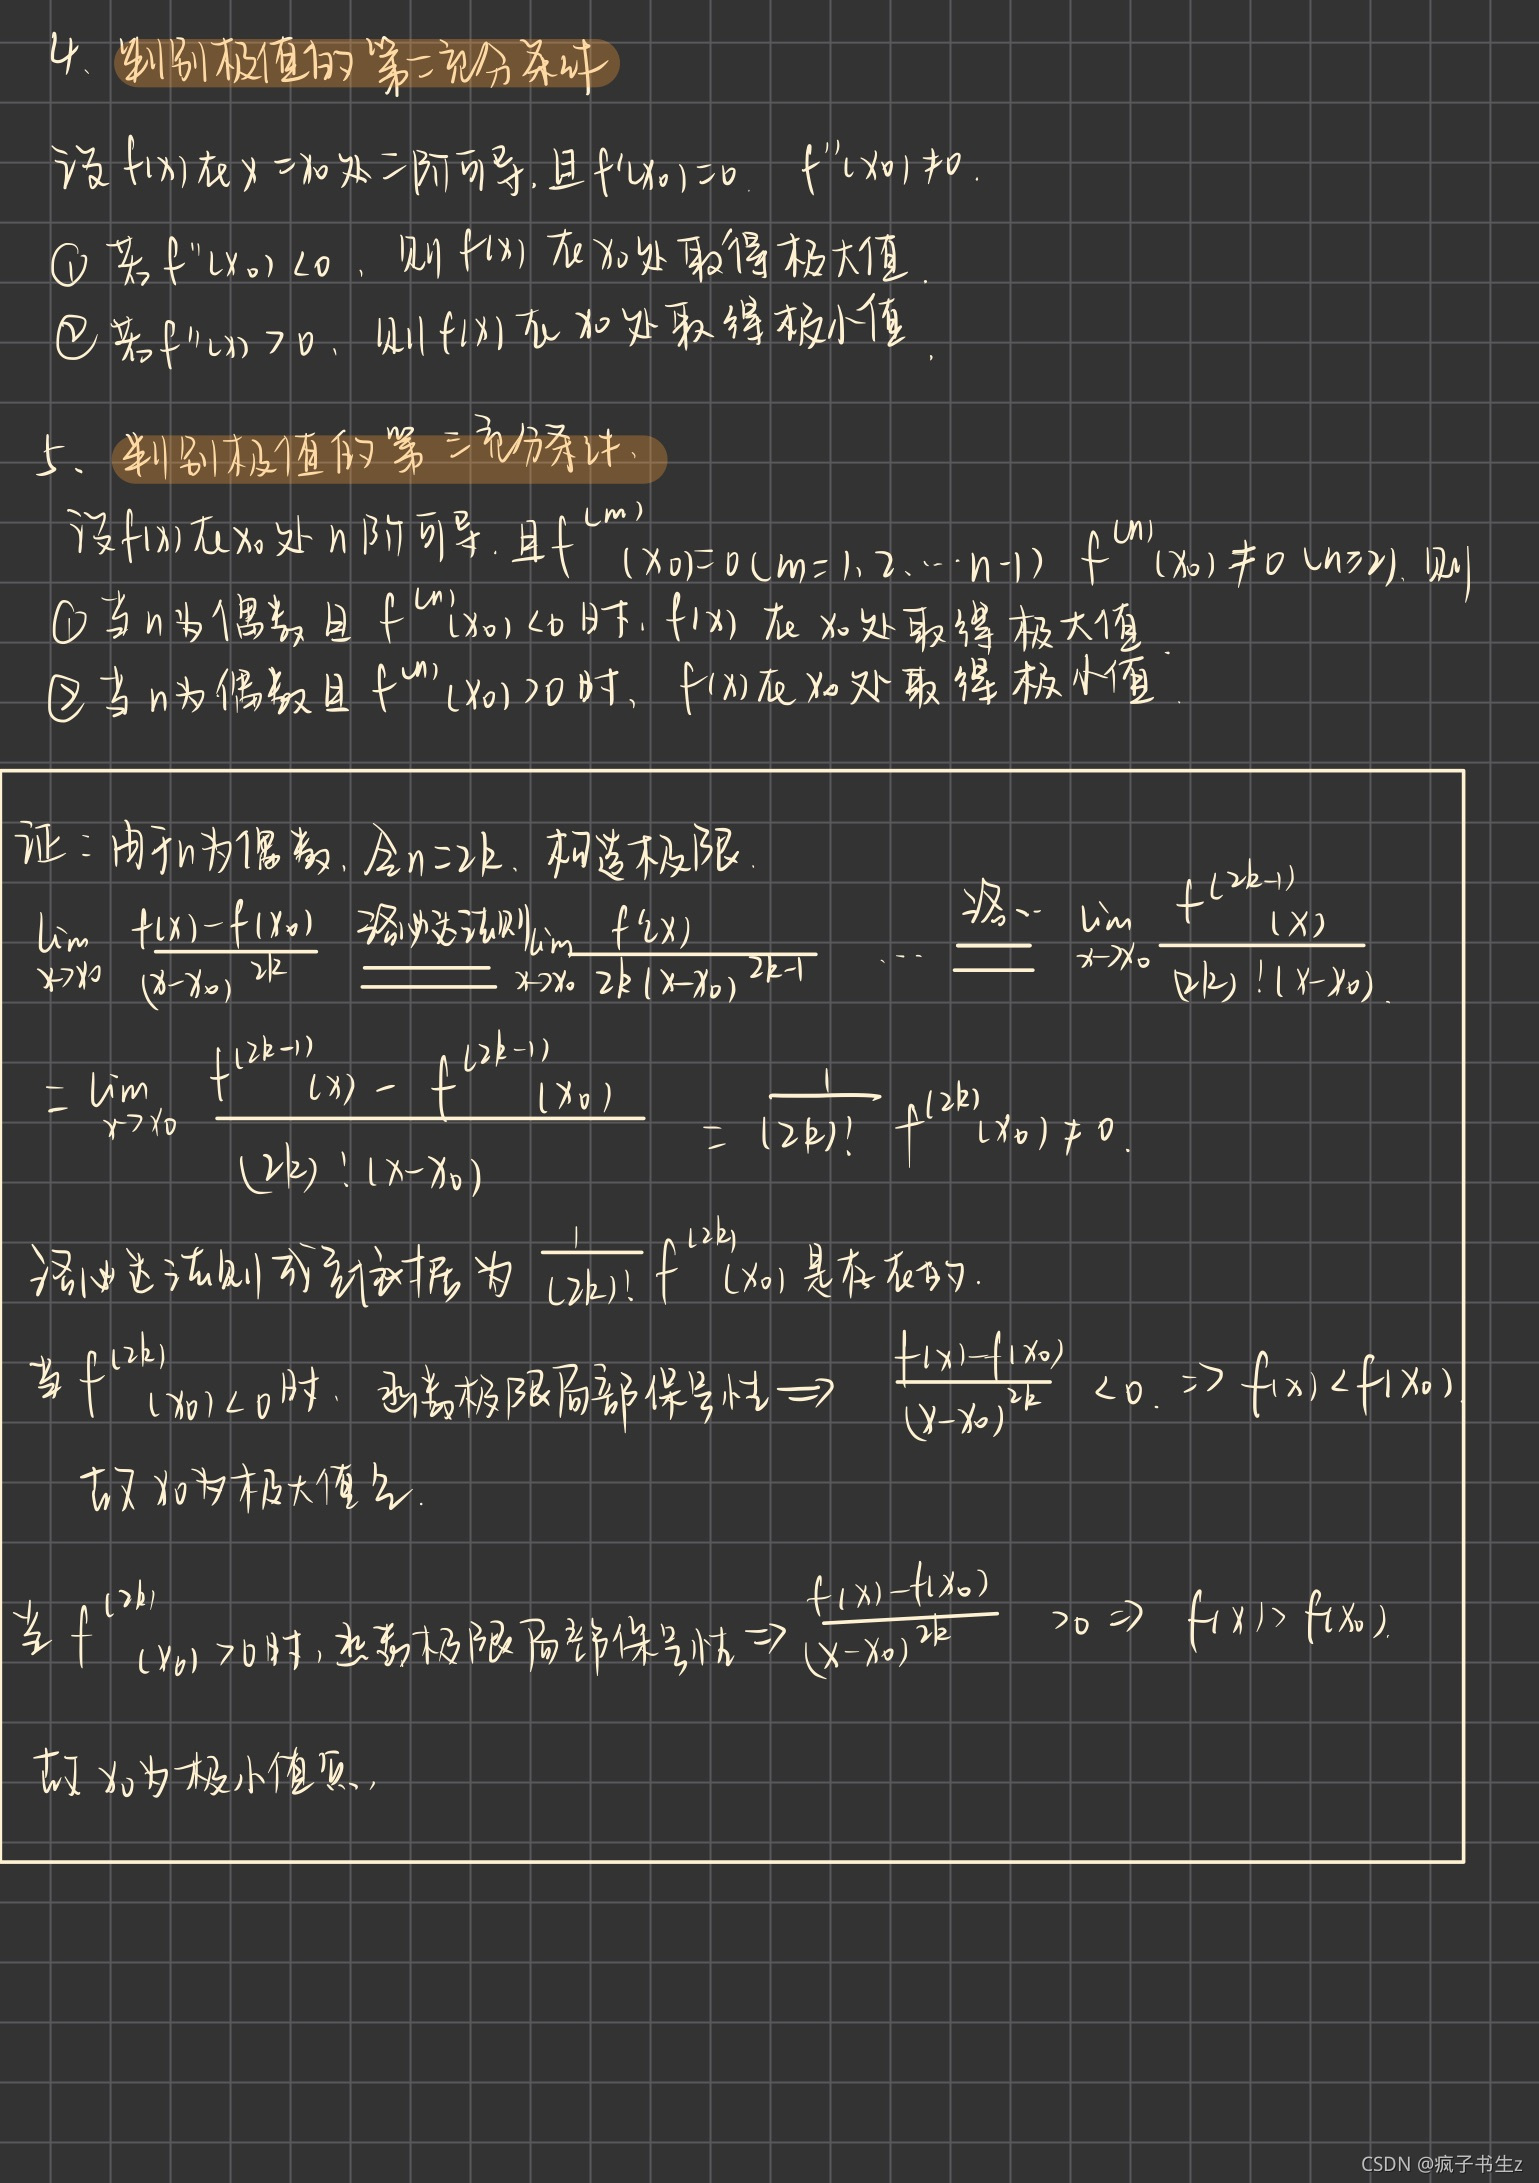 4、判别极值的第二充分条件
设f(x)在x=x₀处二阶可导,且f'(x₀)=0. f''(x₀)≠0.
① 若f''(x₀)<0、则f(x)在x₀处取得极大值.
② 若f''(x)>0、则f(x)在x₀处取得极小值.
5、判别极值的第三充分条件.
设f(x)在x₀处n阶可导.且f^(m)(x₀)=0(m=1、2、…n-1) f^(n)(x₀)≠0(n≥2).则
① 当n为偶数且f^(n)(x₀)<0时、f(x)在x₀处取得极大值.
② 当n为偶数且f^(n)(x₀)>0时、f(x)在x₀处取得极小值.
证:由于n为偶数、令n=2k、构造极限.
lim x→x₀ (f(x)-f(x₀))/(x-x₀)^2k 洛必达法则 = lim x→x₀ f'(x)/(2k(x-x₀)^(2k-1)) … 洛… = lim x→x₀ f^(2k-1)(x)/((2k)!(x-x₀)).
= lim x→x₀ (f^(2k-1)(x)-f^(2k-1)(x₀))/((2k)!(x-x₀)) = 1/(2k)! f^(2k)(x₀)≠0.
洛必达法则成立依据为 1/(2k)! f^(2k)(x₀)是存在的.
当f^(2k)(x₀)<0时、函数极限局部保号性⇒ (f(x)-f(x₀))/(x-x₀)^2k <0. ⇒ f(x)<f(x₀)
故x₀为极大值点.
当f^(2k)(x₀)>0时,函数极限局部保号性⇒ (f(x)-f(x₀))/(x-x₀)^2k >0 ⇒ f(x)>f(x₀).
故x₀为极小值点,
CSDN @疯子书生z